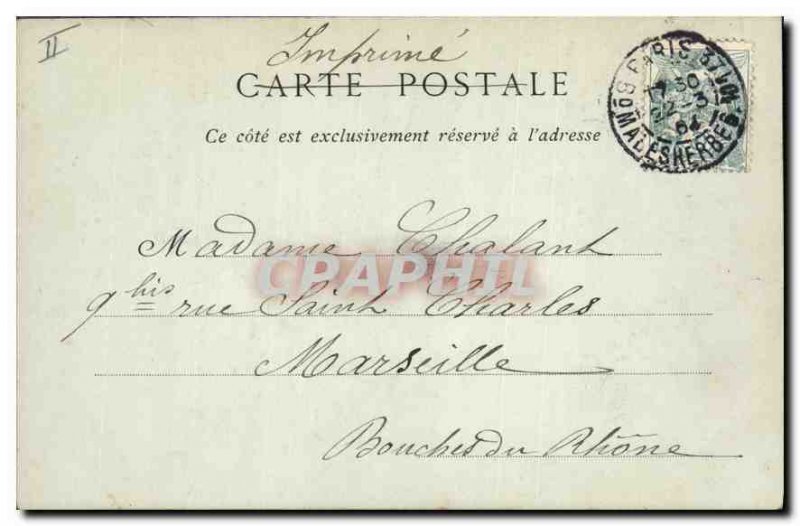 II
Imprimé
CARTE POSTALE
Ce côté est exclusivement réservé à l'adresse
PARIS 37
Bd MALESHERBES
Madame Chalant
9 bis rue Saint Charles
Marseille
Bouches du Rhône
CPAPHIL